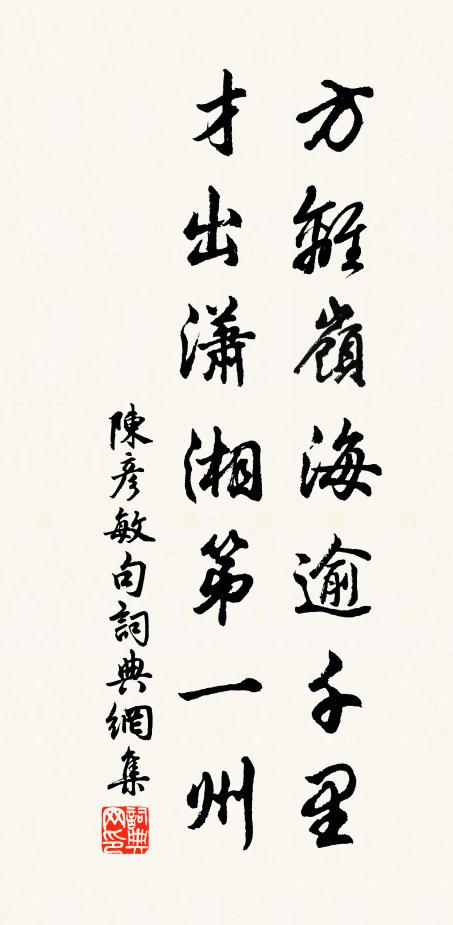 方離嶺海逾千里
才出瀟湘第一州
陳彥敏句詞典網集
詞典网印